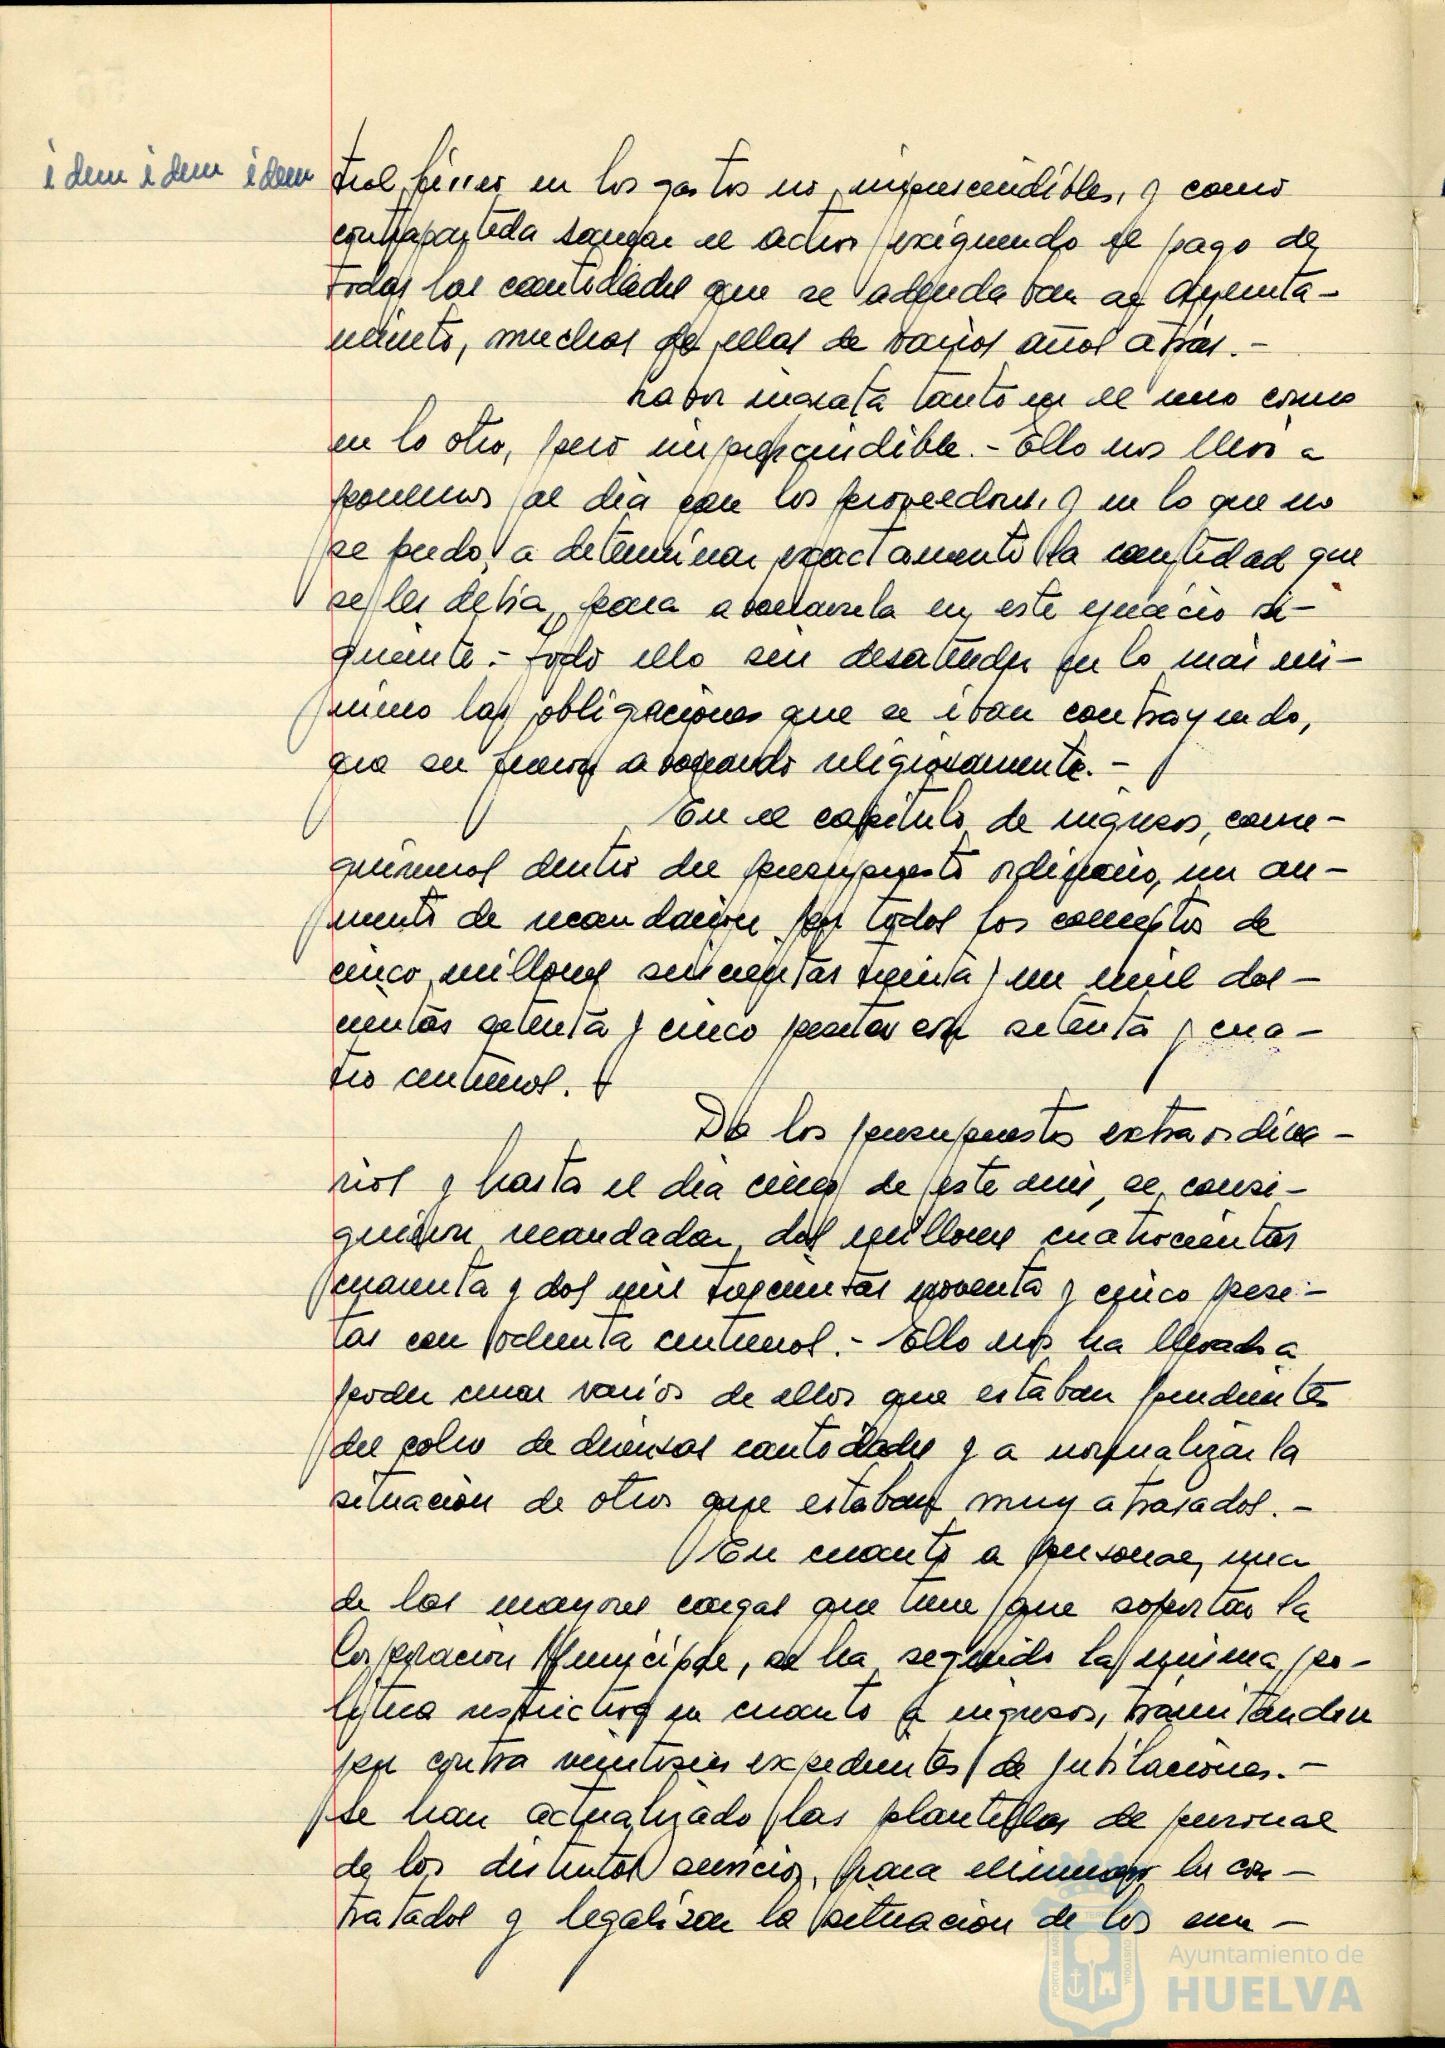 idem idem idem
trol férreo en los gastos no imprescindibles, y como
contrapartida sanear el activo exigiendo el pago de
todas las cantidades que se adeudaban al Ayunta-
miento, muchas de ellas de varios años atrás.-
Labor ingrata tanto en el uno como
en lo otro, pero imprescindible.- Ello nos llevó a
ponernos al día con los proveedores, y en lo que no
se pudo, a determinar exactamente la cantidad que
se les debía, para abonarsela en este ejercicio si-
guiente.- Todo ello sin desatender en lo más mí-
nimo las obligaciones que se iban contrayendo,
que se fueron abonando religiosamente.-
En el capítulo de ingresos, conse-
guimos dentro del presupuesto ordinario, un au-
mento de recaudación por todos los conceptos de
cinco millones seiscientas treinta y un mil dos-
cientas setenta y cinco pesetas con setenta y cua-
tro centimos.-
De los presupuestos extraordina-
rios y hasta el día cinco de este mes, se consi-
guieron recaudar, dos millones cuatrocientas
cuarenta y dos mil trescientas noventa y cinco pese-
tas con ochenta centimos.- Ello nos ha llevado a
poder cerrar varios de ellos que estaban pendientes
del cobro de diversas cantidades y a normalizar la
situación de otros que estaban muy atrasados.-
En cuanto a personal, una
de las mayores cargas que tiene que soportar la
Corporación Municipal, se ha seguido la misma po-
lítica restrictiva en cuanto a ingresos, tramitandose
por contra veintiseis expedientes de jubilaciones.-
Se han actualizado las plantillas de personal
de los distintos servicios, para eliminar los con-
tratados y legalizar la situación de los
Ayuntamiento de
HUELVA